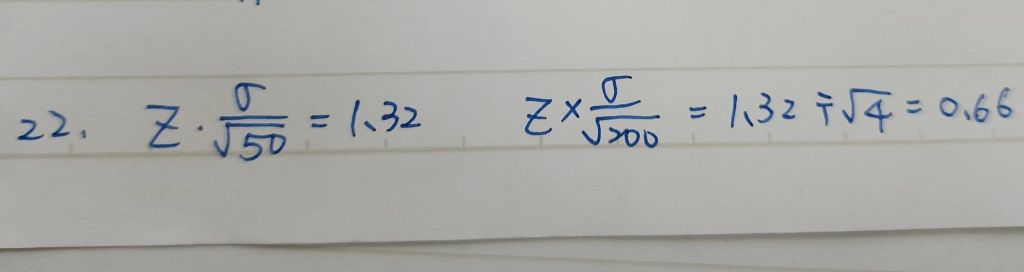 22. Z · σ/√50 = 1.32 Z × σ/√200 = 1.32 ÷ √4 = 0.66